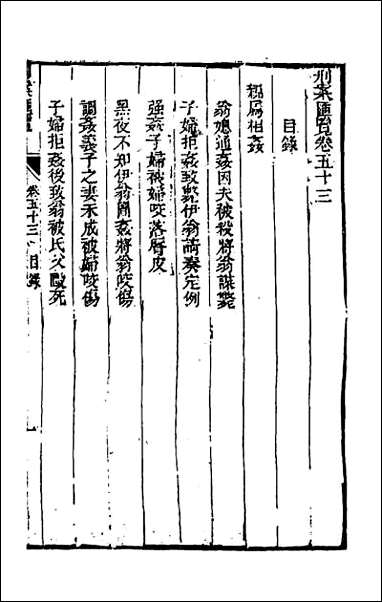 刑案匯覽卷五十三
目錄
親屬相姦
翁媳通姦因夫被殺將翁謀斃
子婦拒姦致斃伊翁請奏定例
強姦子婦被婦咬落唇皮
黑夜不知伊翁圖姦將翁咬傷
調姦義子之妻未成被婦咬傷
子婦拒姦後致翁被氏父毆死
卷五十三 目錄